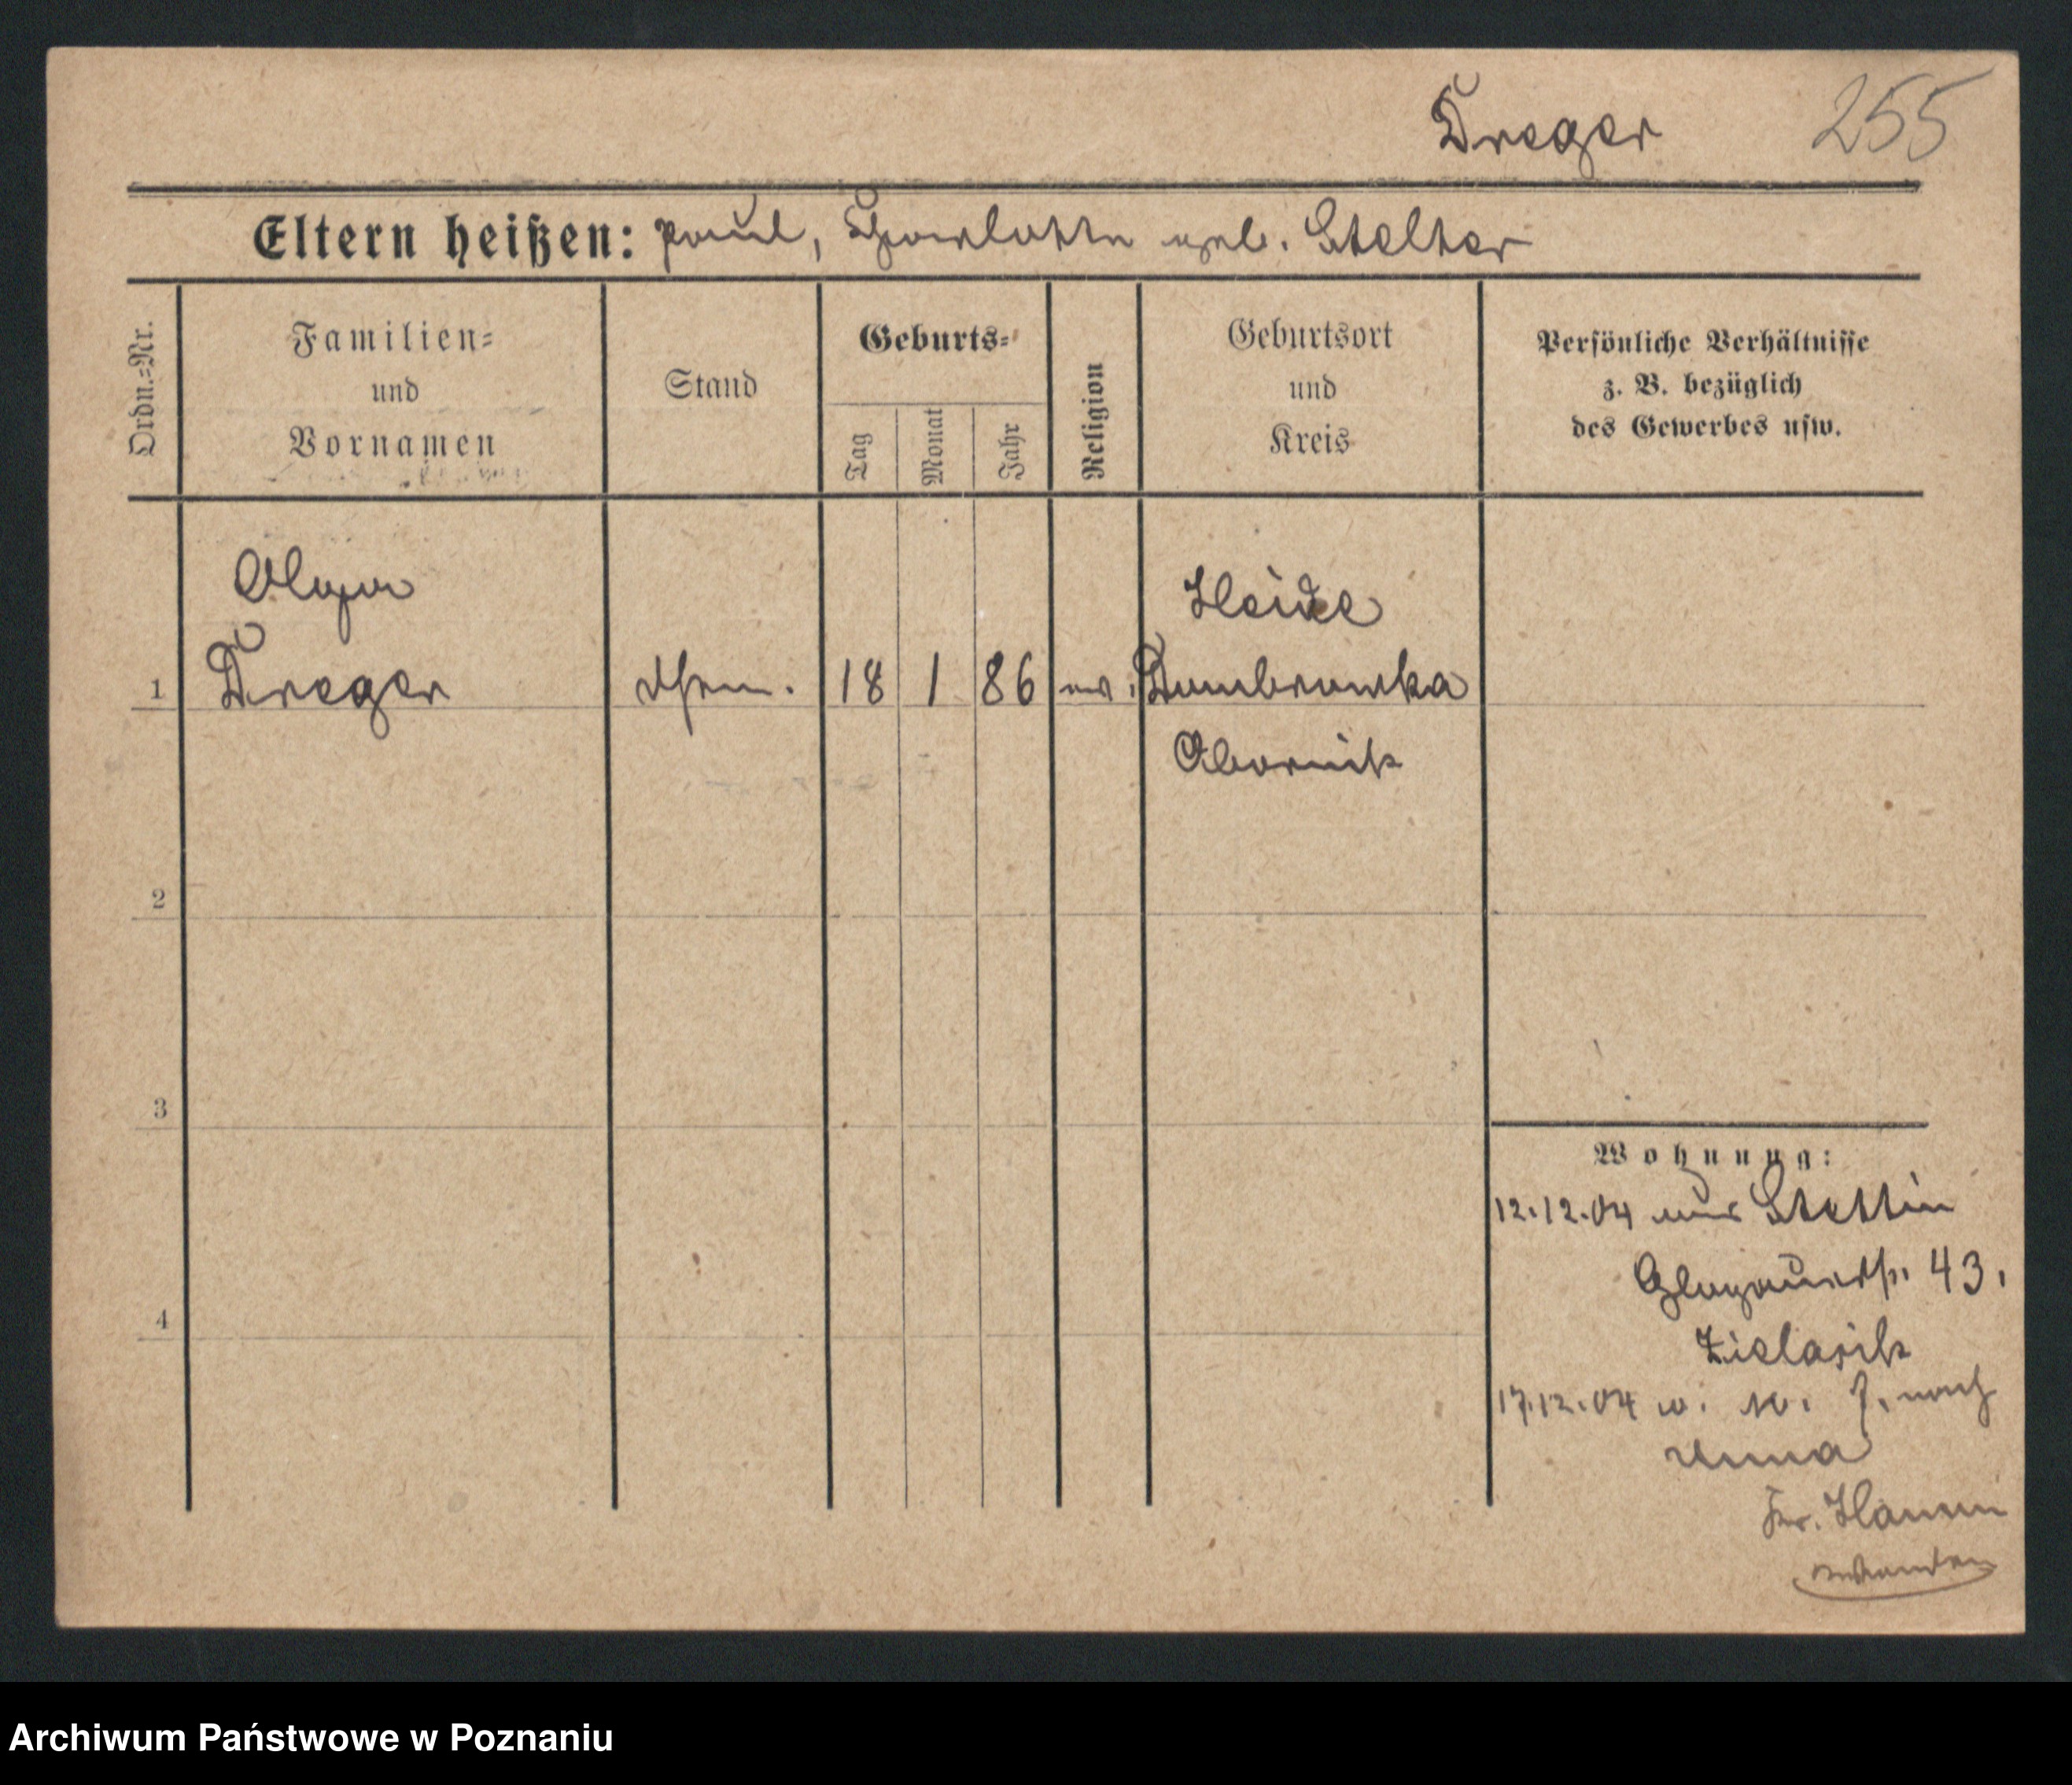 Dreger 255
Eltern heißen: Paul, Charlotte geb. Stelter
Ordn.=Nr.
Familien=
und
Vornamen
Stand
Geburts=
Tag
Monat
Jahr
Religion
Geburtsort
und
Kreis
Persönliche Verhältnisse
z. B. bezüglich
des Gewerbes usw.
Olga
Heide
1 Dreger 18 1 86 ev. Dombrowka
Obornik
2
3
4
Wohnung:
12.12.04 aus Stettin
Glogauerstr. 43.
Zielasik
17.12.04 nach
Unna
Kr. Hamm
Archiwum Państwowe w Poznaniu